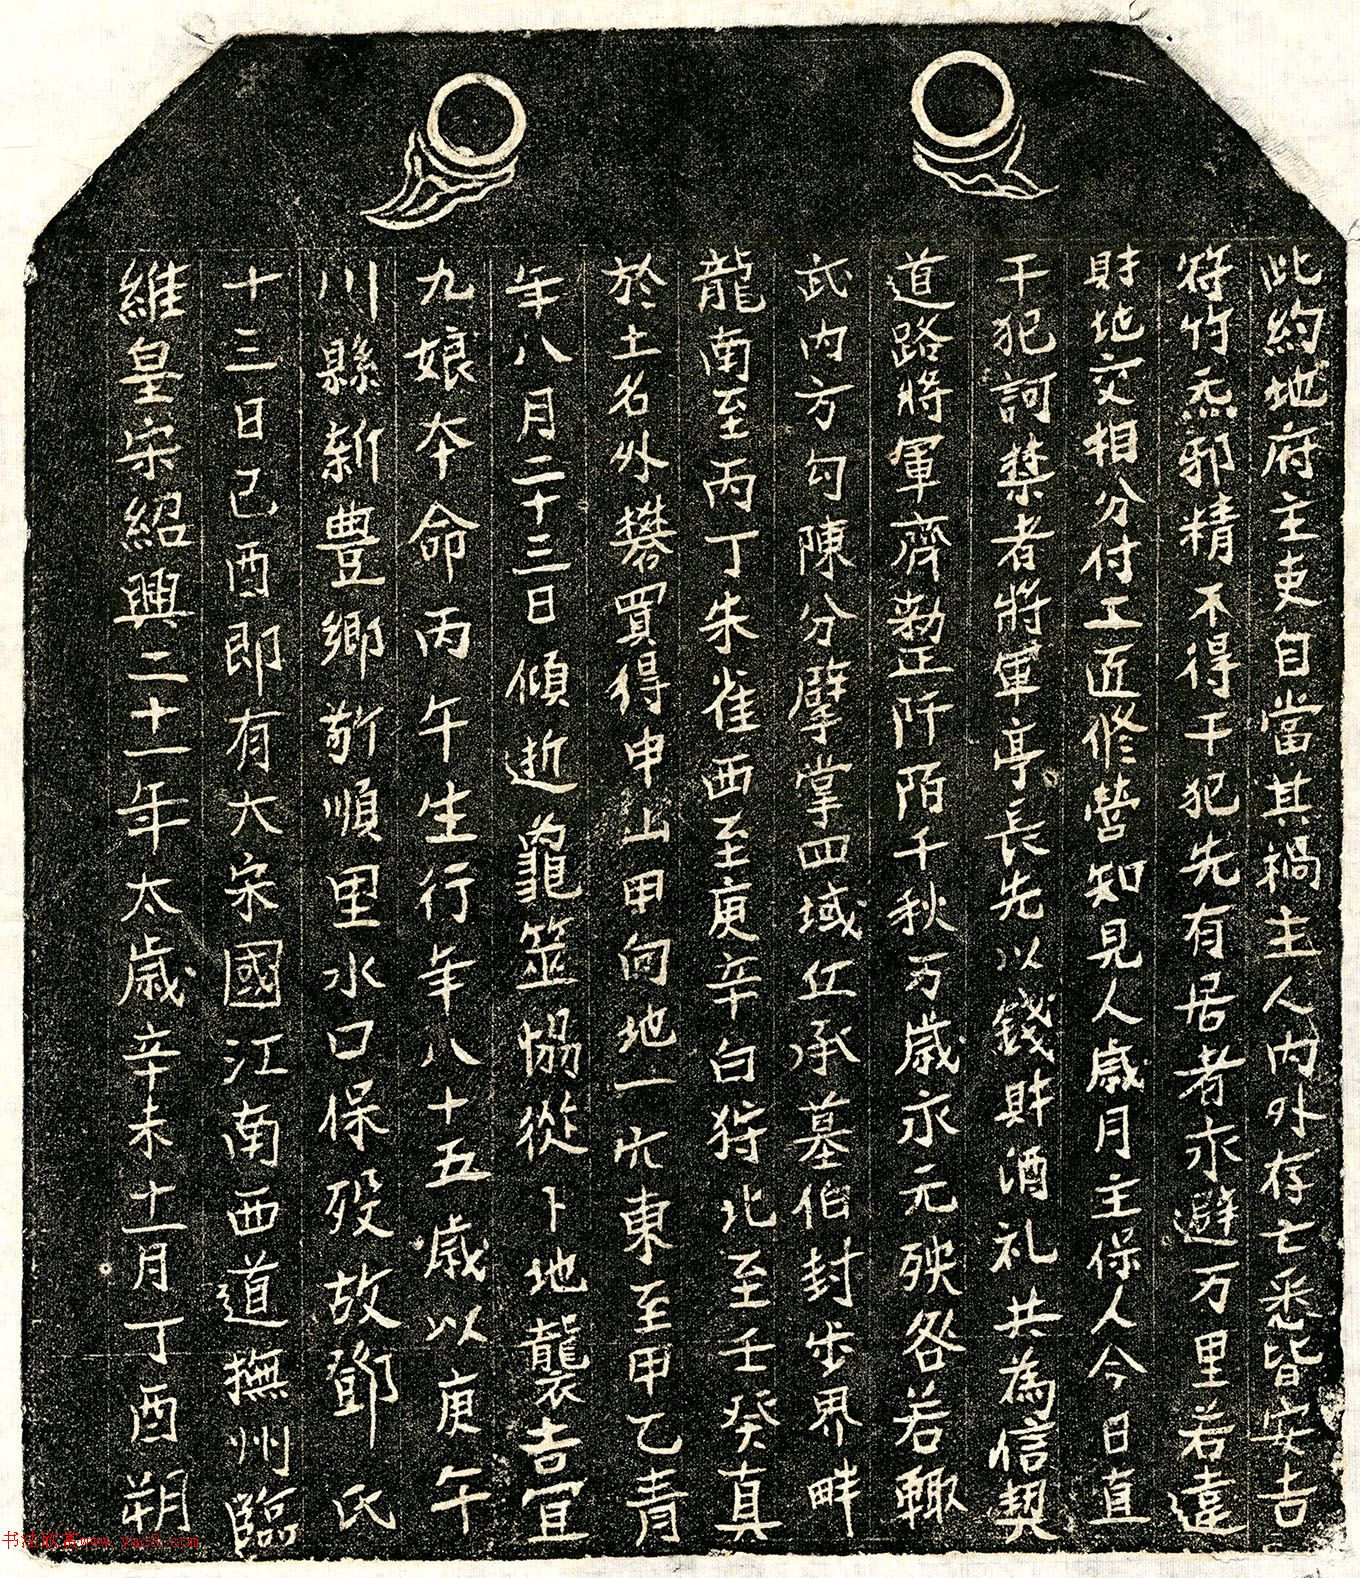 維皇宋紹興二十一年太歲辛未十一月丁酉朔
十三日己酉即有大宋國江南西道撫州臨
川縣新豐鄉順里水口保歿故鄧氏
九娘本命丙午生行年八十五歲以庚午
年八月二十三日傾逝龜筮恊從卜地襲吉宜
於土名外礬買得申山甲向地一穴東至甲乙青
龍南至丙丁朱雀西至庚辛白狩北至壬癸真
武内方勾陳分擘掌四域丘承墓伯封步界畔
道路將軍齊勑正阡陌千秋万歲永元殃咎若輙
干犯訶禁者將軍亭長先以錢財酒礼共為信契
財地交相分付工匠修營知見人歲月主保人今日直
符竹炁邪精不得干犯先有居者永避万里若違
此約地府主吏自當其禍主人内外存亡悉皆安吉
书法欣赏www.yac8.com